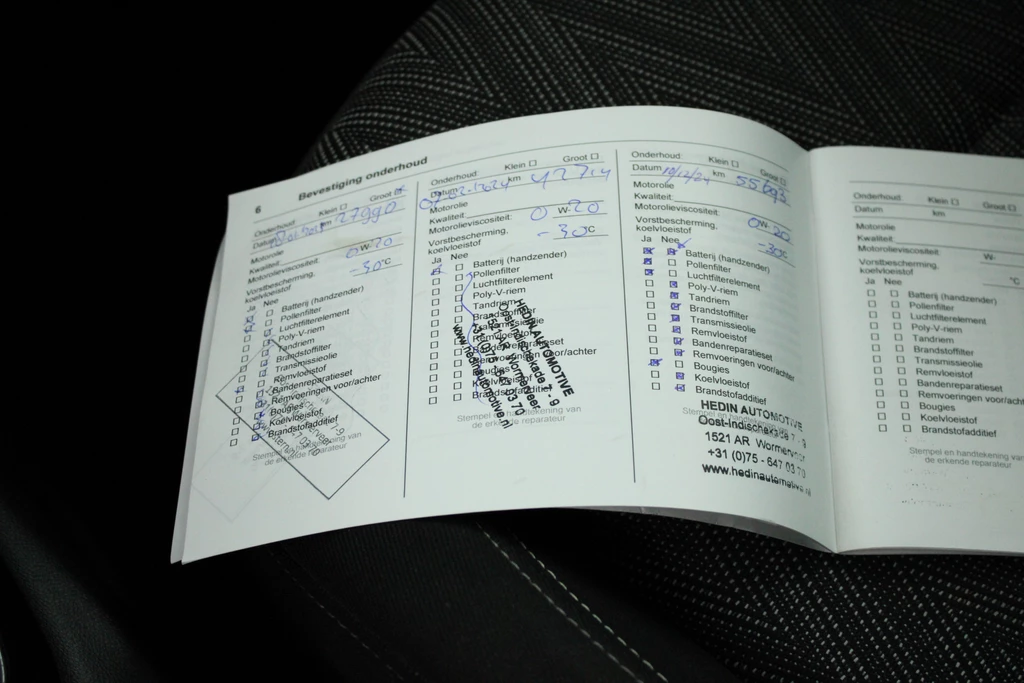 6 Bevestiging onderhoud
Onderhoud: Klein Groot
Datum km 27990
Motorolie
Kwaliteit
Motorolieviscositeit: 0 W- 20
Vorstbescherming,
koelvloeistof -30 °C
Ja Nee
Batterij (handzender)
Pollenfilter
Luchtfilterelement
Poly-V-riem
Tandriem
Brandstoffilter
Transmissieolie
Remvloeistof
Bandenreparatieset
Remvoeringen voor/achter
Bougies
Koelvloeistof
Brandstofadditief
Stempel en handtekening van
de erkende reparateur
Onderhoud: Klein Groot
Datum 07-02-2024 km 42714
Motorolie
Kwaliteit
Motorolieviscositeit: 0 W- 20
Vorstbescherming,
koelvloeistof -30 °C
Ja Nee
Batterij (handzender)
Pollenfilter
Luchtfilterelement
Poly-V-riem
Tandriem
Brandstoffilter
Transmissieolie
Remvloeistof
Bandenreparatieset
Remvoeringen voor/achter
Bougies
Koelvloeistof
Brandstofadditief
HEDIN AUTOMOTIVE
Oost-Indischekade 7 - 9
1521 AR Wormerveer
+31 (0)75 - 647 03 70
www.hedinautomotive.nl
Stempel en handtekening van
de erkende reparateur
Onderhoud: Klein Groot
Datum 10/12/24 km 55693
Motorolie
Kwaliteit:
Motorolieviscositeit: 0 W- 20
Vorstbescherming,
koelvloeistof -30 °C
Ja Nee
Batterij (handzender)
Pollenfilter
Luchtfilterelement
Poly-V-riem
Tandriem
Brandstoffilter
Transmissieolie
Remvloeistof
Bandenreparatieset
Remvoeringen voor/achter
Bougies
Koelvloeistof
Brandstofadditief
Stempel en handtekening van
HEDIN AUTOMOTIVE
Oost-Indischekade 7 - 9
1521 AR Wormerveer
+31 (0)75 - 647 03 70
www.hedinautomotive.nl
Onderhoud: Klein Groot
Datum km
Motorolie
Kwaliteit:
Motorolieviscositeit: W-
Vorstbescherming,
koelvloeistof °C
Ja Nee
Batterij (handzender)
Pollenfilter
Luchtfilterelement
Poly-V-riem
Tandriem
Brandstoffilter
Transmissieolie
Remvloeistof
Bandenreparatieset
Remvoeringen voor/achter
Bougies
Koelvloeistof
Brandstofadditief
Stempel en handtekening van
de erkende reparateur